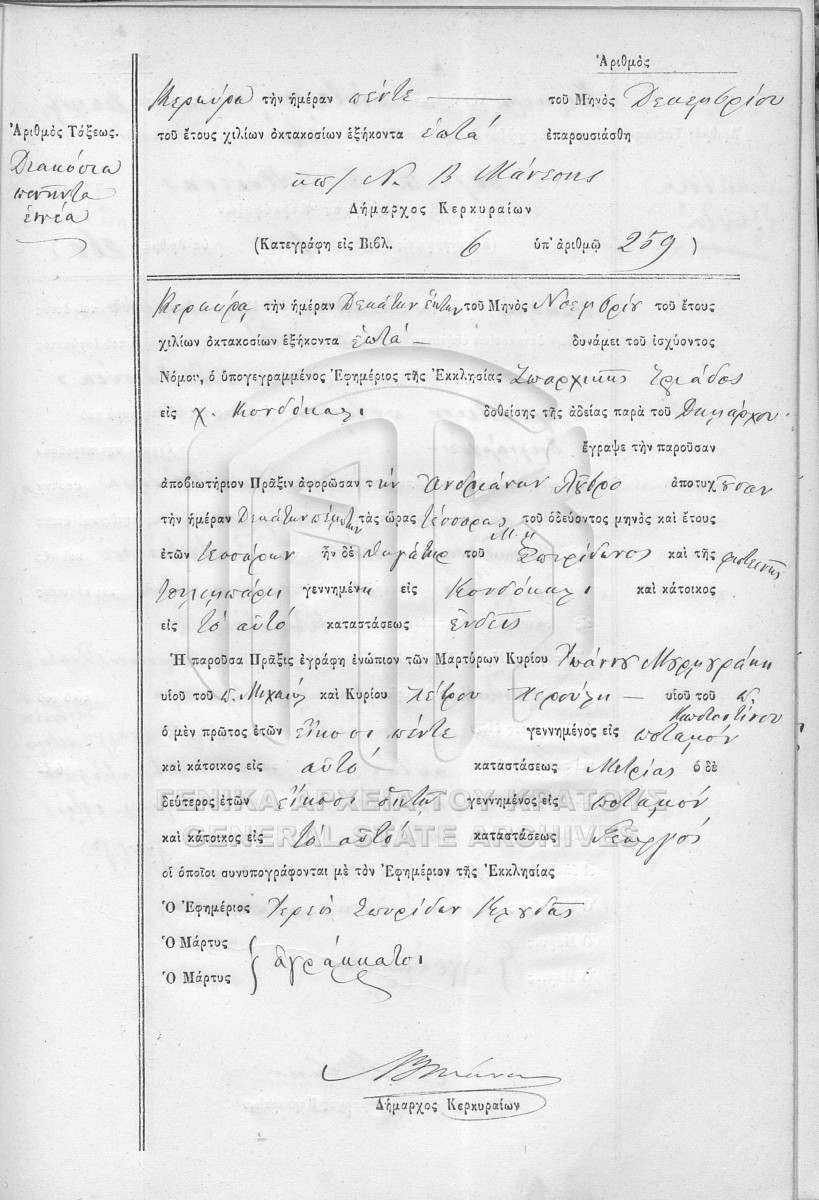 Ἀριθμὸς
Κερκύρᾳ τὴν ἡμέραν πέντε τοῦ Μηνὸς Δεκεμβρίου
Ἀριθμὸς Τάξεως.
τοῦ ἔτους χιλίων ὀκτακοσίων ἑξήκοντα ἑπτά ἐπαρουσιάσθη
Διακόσια
πενήντα
ἐννέα
Ν. Β Μάνεσης
Δήμαρχος Κερκυραίων
(Κατεγράφη εἰς Βιβλ. 6 ὑπ' ἀριθμῷ 259)
Κερκύρᾳ τὴν ἡμέραν Δεκάτην ἕκτην τοῦ Μηνὸς Νοεμβρίου τοῦ ἔτους
χιλίων ὀκτακοσίων ἑξήκοντα ἑπτά δυνάμει τοῦ ἰσχύοντος
Νόμου, ὁ ὑπογεγραμμένος Ἐφημέριος τῆς Ἐκκλησίας Ὑπαρχικῆς Τριάδος
εἰς χ. Κονδόκαλι δοθείσης τῆς ἀδείας παρὰ τοῦ Δημάρχου
ἔγραψε τὴν παροῦσαν
ἀποβιωτήριον Πρᾶξιν ἀφορῶσαν τὴν Ἀνδριάνην ἀποτυχοῦσαν
τὴν ἡμέραν Δεκάτην πέμπτην τὰς ὥρας τέσσαρας τοῦ ὁδεύοντος μηνὸς καὶ ἔτους
ἐτῶν τεσσάρων ἦν δὲ θυγάτηρ τοῦ Σπιρίδωνος καὶ τῆς Φωτεινῆς
γεννημένη εἰς Κονδόκαλι καὶ κάτοικος
εἰς τὸ αὐτό καταστάσεως ἐνδεής
Ἡ παροῦσα Πρᾶξις ἐγράφη ἐνώπιον τῶν Μαρτύρων Κυρίου Ἰωάννου
υἱοῦ τοῦ π. Μιχαήλ καὶ Κυρίου Πέτρου Περούλη υἱοῦ τοῦ π. Κωνσταντίνου
ὁ μὲν πρῶτος ἐτῶν εἴκοσι πέντε γεννημένος εἰς ποταμόν
καὶ κάτοικος εἰς αὐτό καταστάσεως Μετρίας ὁ δὲ
δεύτερος ἐτῶν εἴκοσι ὀκτώ γεννημένος εἰς ποταμόν
καὶ κάτοικος εἰς τὸ αὐτό καταστάσεως Γεωργός
οἱ ὁποῖοι συνυπογράφονται μὲ τὸν Ἐφημέριον τῆς Ἐκκλησίας
Ὁ Ἐφημέριος Ἱερεύς Σπυρίδων
Ὁ Μάρτυς
ἀγράμματοι
Ὁ Μάρτυς
Δήμαρχος Κερκυραίων
ΓΕΝΙΚΑ ΑΡΧΕΙΑ ΤΟΥ ΚΡΑΤΟΥΣ
GENERAL STATE ARCHIVES